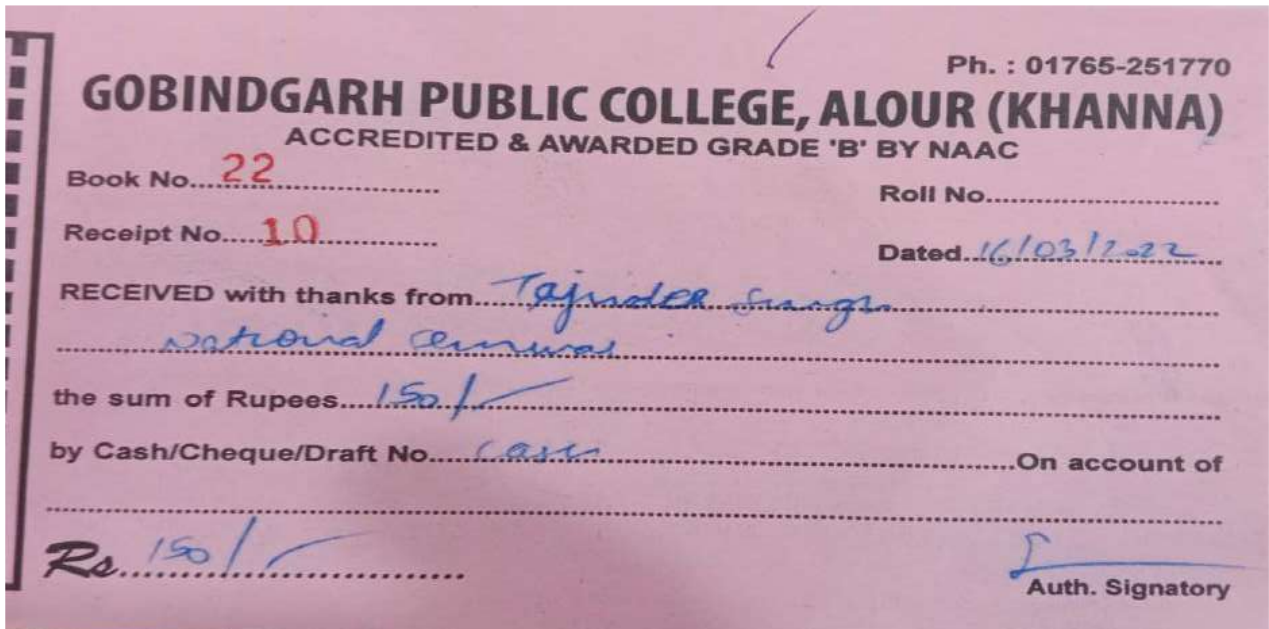 Ph. : 01765-251770
GOBINDGARH PUBLIC COLLEGE, ALOUR (KHANNA)
ACCREDITED & AWARDED GRADE 'B' BY NAAC
Book No....22....................
Roll No.............................
Receipt No.....10...............
Dated..16/03/2022
RECEIVED with thanks from....Tajinder Singh
National
the sum of Rupees....150/-
by Cash/Cheque/Draft No.....Cash.............On account of
Rs...150/-
Auth. Signatory